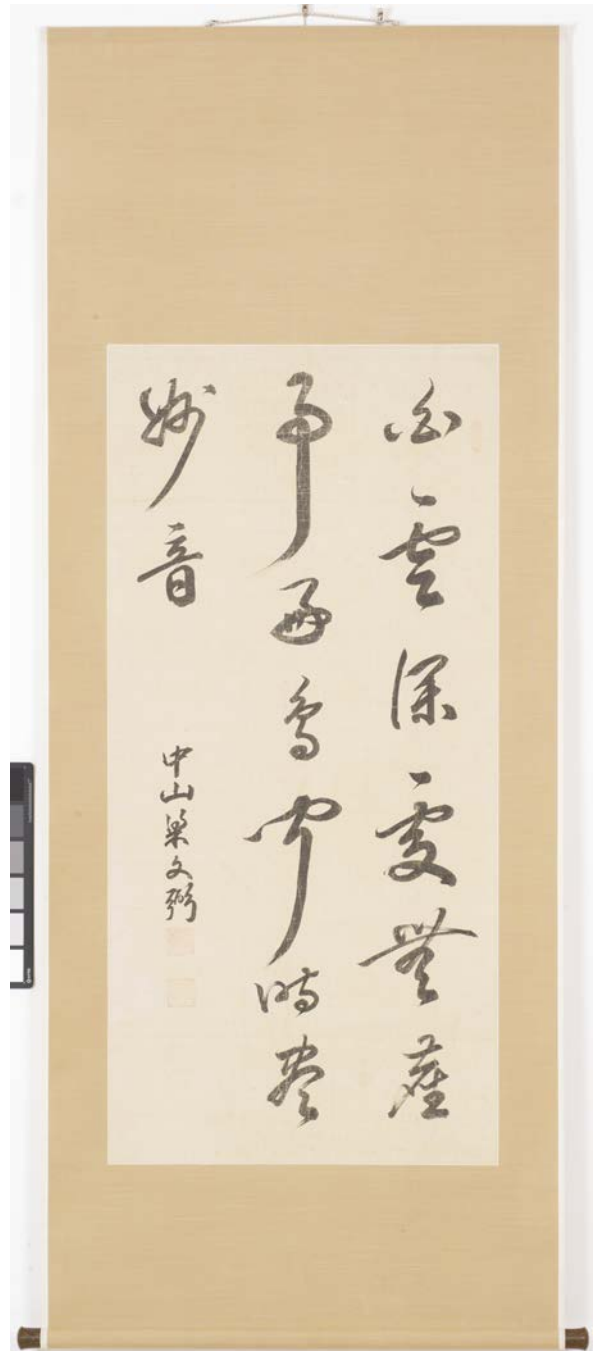 白雲深處無塵
事幽鳥啼時盡
妙音
中山梁文弼